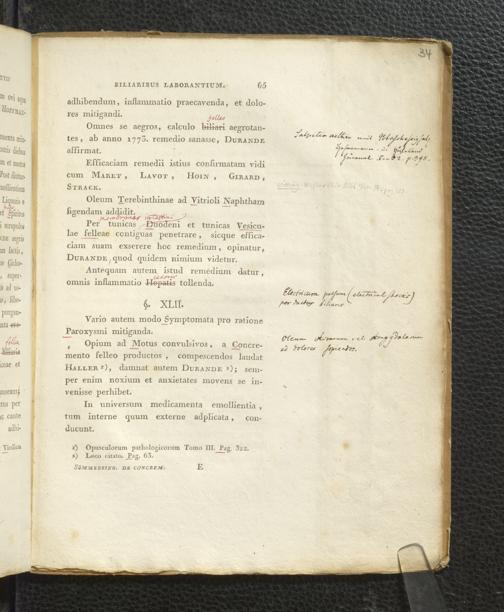 34
BILIARIBUS LABORANTIUM. 65
adhibendum, inflammatio praecavenda, et dolo-
res mitigandi.
felleo
Omnes se aegros, calculo biliari aegrotan-
tes, ab anno 1773. remedio sanasse, DURANDE
affirmat.
Efficaciam remedii istius confirmatam vidi
cum MARET, LAVOT, HOIN, GIRARD,
STRACK.
Oleum Terebinthinae ad Vitrioli Naphtham
figendam addidit.
membranas intestini
Per tunicas Duodeni et tunicas Vesicu-
lae felleae contiguas penetrare, sicque effica-
ciam suam exserere hoc remedium, opinatur,
DURANDE, quod quidem nimium videtur.
Antequam autem istud remedium datur,
omnis inflammatio Hepatis tollenda.
§. XLII.
Vario autem modo Symptomata pro ratione
Paroxysmi mitiganda.
Opium ad Motus convulsivos, a Concre-
mento felleo productos, compescendos laudat
HALLER ¹), damnat autem DURANDE ²); sem-
per enim noxium et anxietates movens se in-
venisse perhibet.
In universum medicamenta emollientia,
tum interne quum externe adplicata, con-
ducunt.
¹) Opusculorum pathologicorum Tomo III. Pag. 322.
²) Loco citato. Pag. 63.
SÖMMERRING. DE CONCREM. E
Electricum pulsum (electrical shocks)
per ductus biliarios
Oleum olivarum vel Amygdalarum
ad dolores sopiendos.